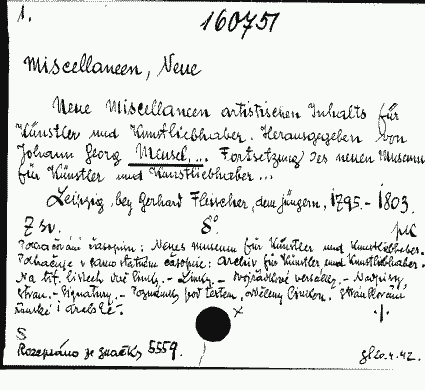 1.
160751
Miscellaneen, Neue
Neue Miscellaneen artistischen Inhalts für
Künstler und Kunstliebhaber. Herausgegeben von
Johann Georg Meusel, ... Fortsetzung des neuen Museums
für Künstler und Kunstliebhaber ...
Leipzig, bey Gerhard Fleischer, dem jüngern, 1795.-1803.
7 sv. 8°
Pokračování časopisu: Neues museum für Künstler und Kunstliebhaber.
Pokračuje v samostatném časopise: Archiv für Künstler und Kunstliebhaber.
Na tit. listech dvě linky. - Linky. - Dvojřádkové versálky. - Nadpisy,
stran. - Signatury. - Poznámky pod textem, odděleny linkou. Stránkování
./.
S
Rozepsáno ze značky 5559.